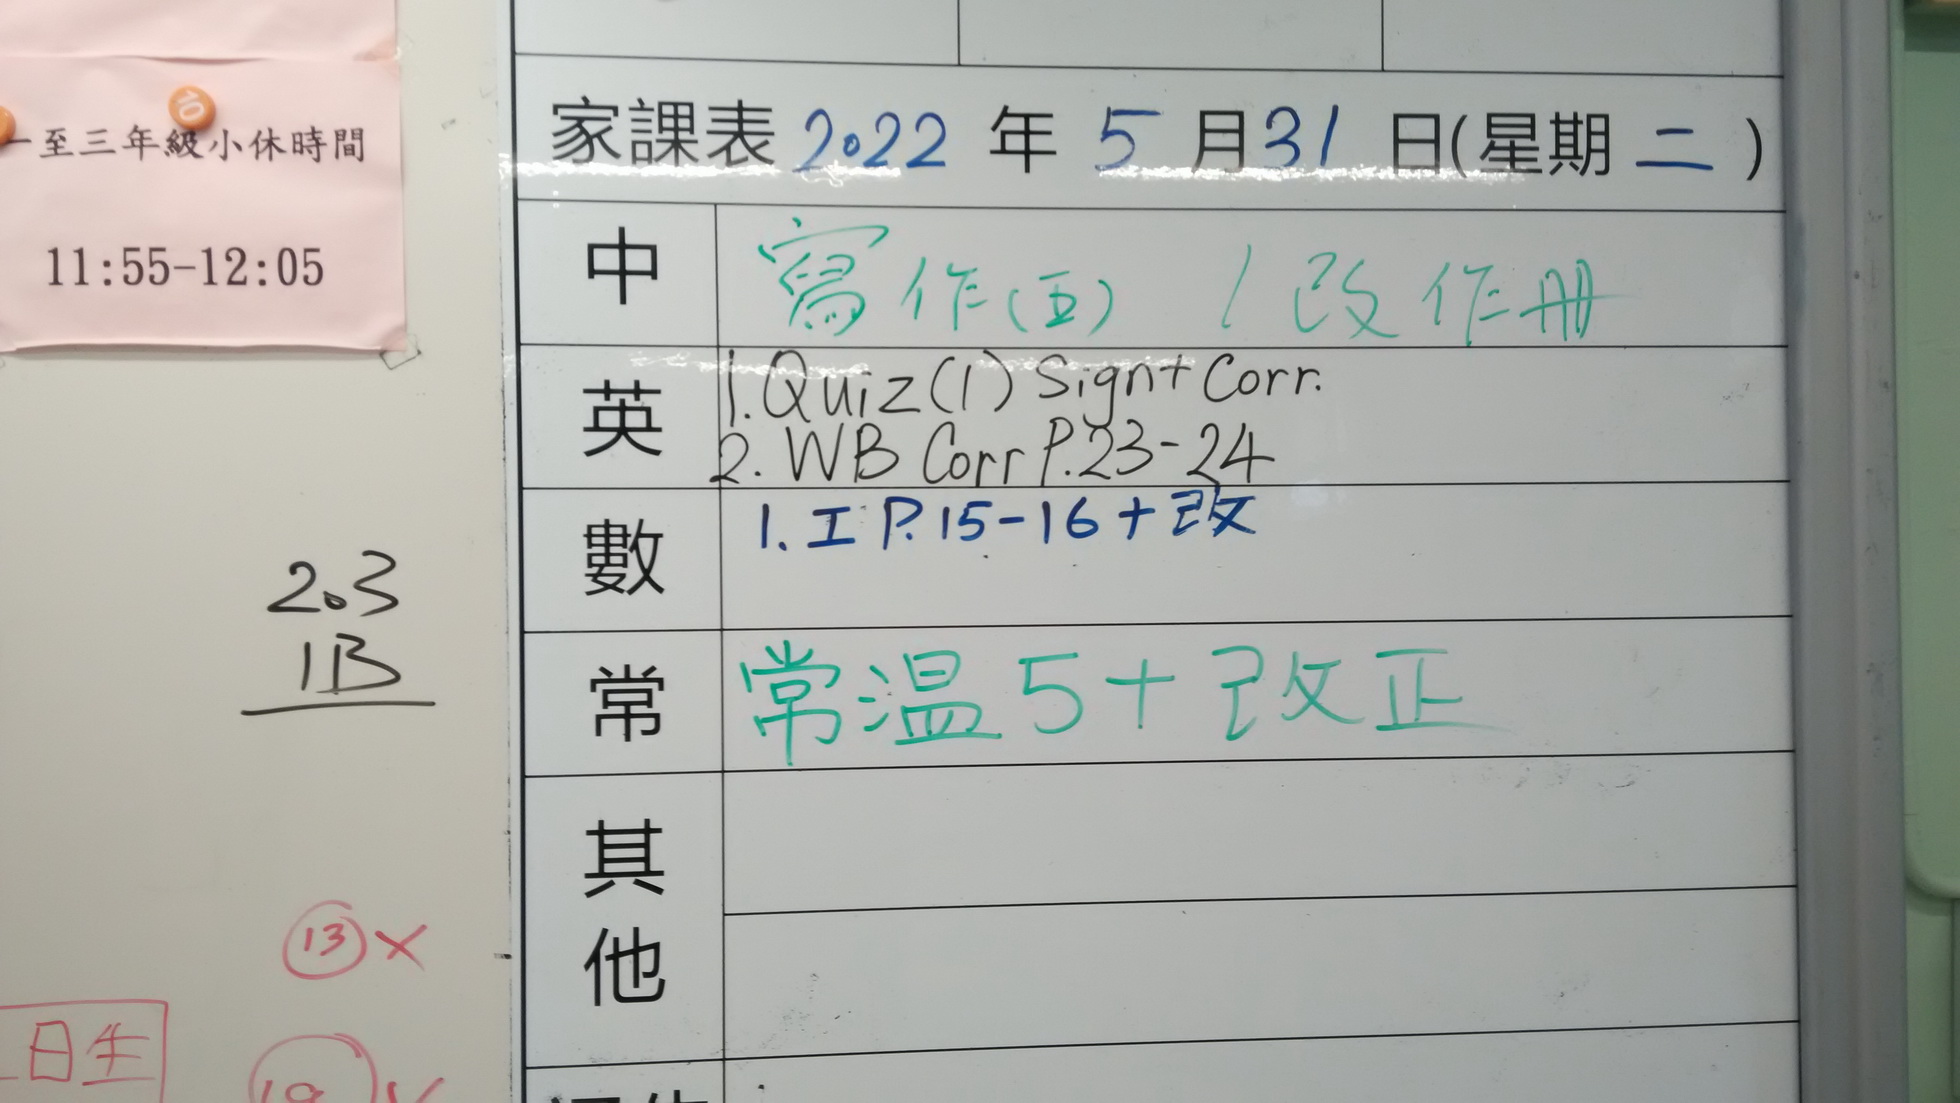 一至三年級小休時間
11:55-12:05
家課表 2022 年 5 月 31 日(星期 二 )
中 寫作(五) / 改作冊
英 1. Quiz(1) Sign + Corr.
2. WB Corr P.23-24
數 1. 工 P.15-16 + 改
常 常温5+改正
其他
2.3
1B
13 X
日生